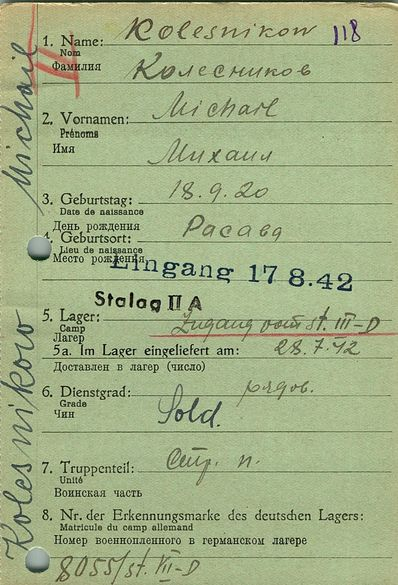 118
1. Name: Kolesnikow
Nom
Фамилия Колесников
2. Vornamen: Michail
Prénoms
Имя Михаил
3. Geburtstag: 18.9.20
Date de naissance
День рождения
4. Geburtsort: Расава
Lieu de naissance
Место рождения
Eingang 17 8.42
Stalag II A
5. Lager: Zugang vom St. III-D
Camp
Лагер
5a. Im Lager eingeliefert am: 28.7.42
Доставлен в лагер (число)
6. Dienstgrad: рядов.
Grade
Чин Sold.
7. Truppenteil: Стр. п.
Unité
Воинская часть
8. Nr. der Erkennungsmarke des deutschen Lagers:
Matricule du camp allemand
Номер военнопленного в германском лагере
8055/St. III-D
Kolesnikow Michail